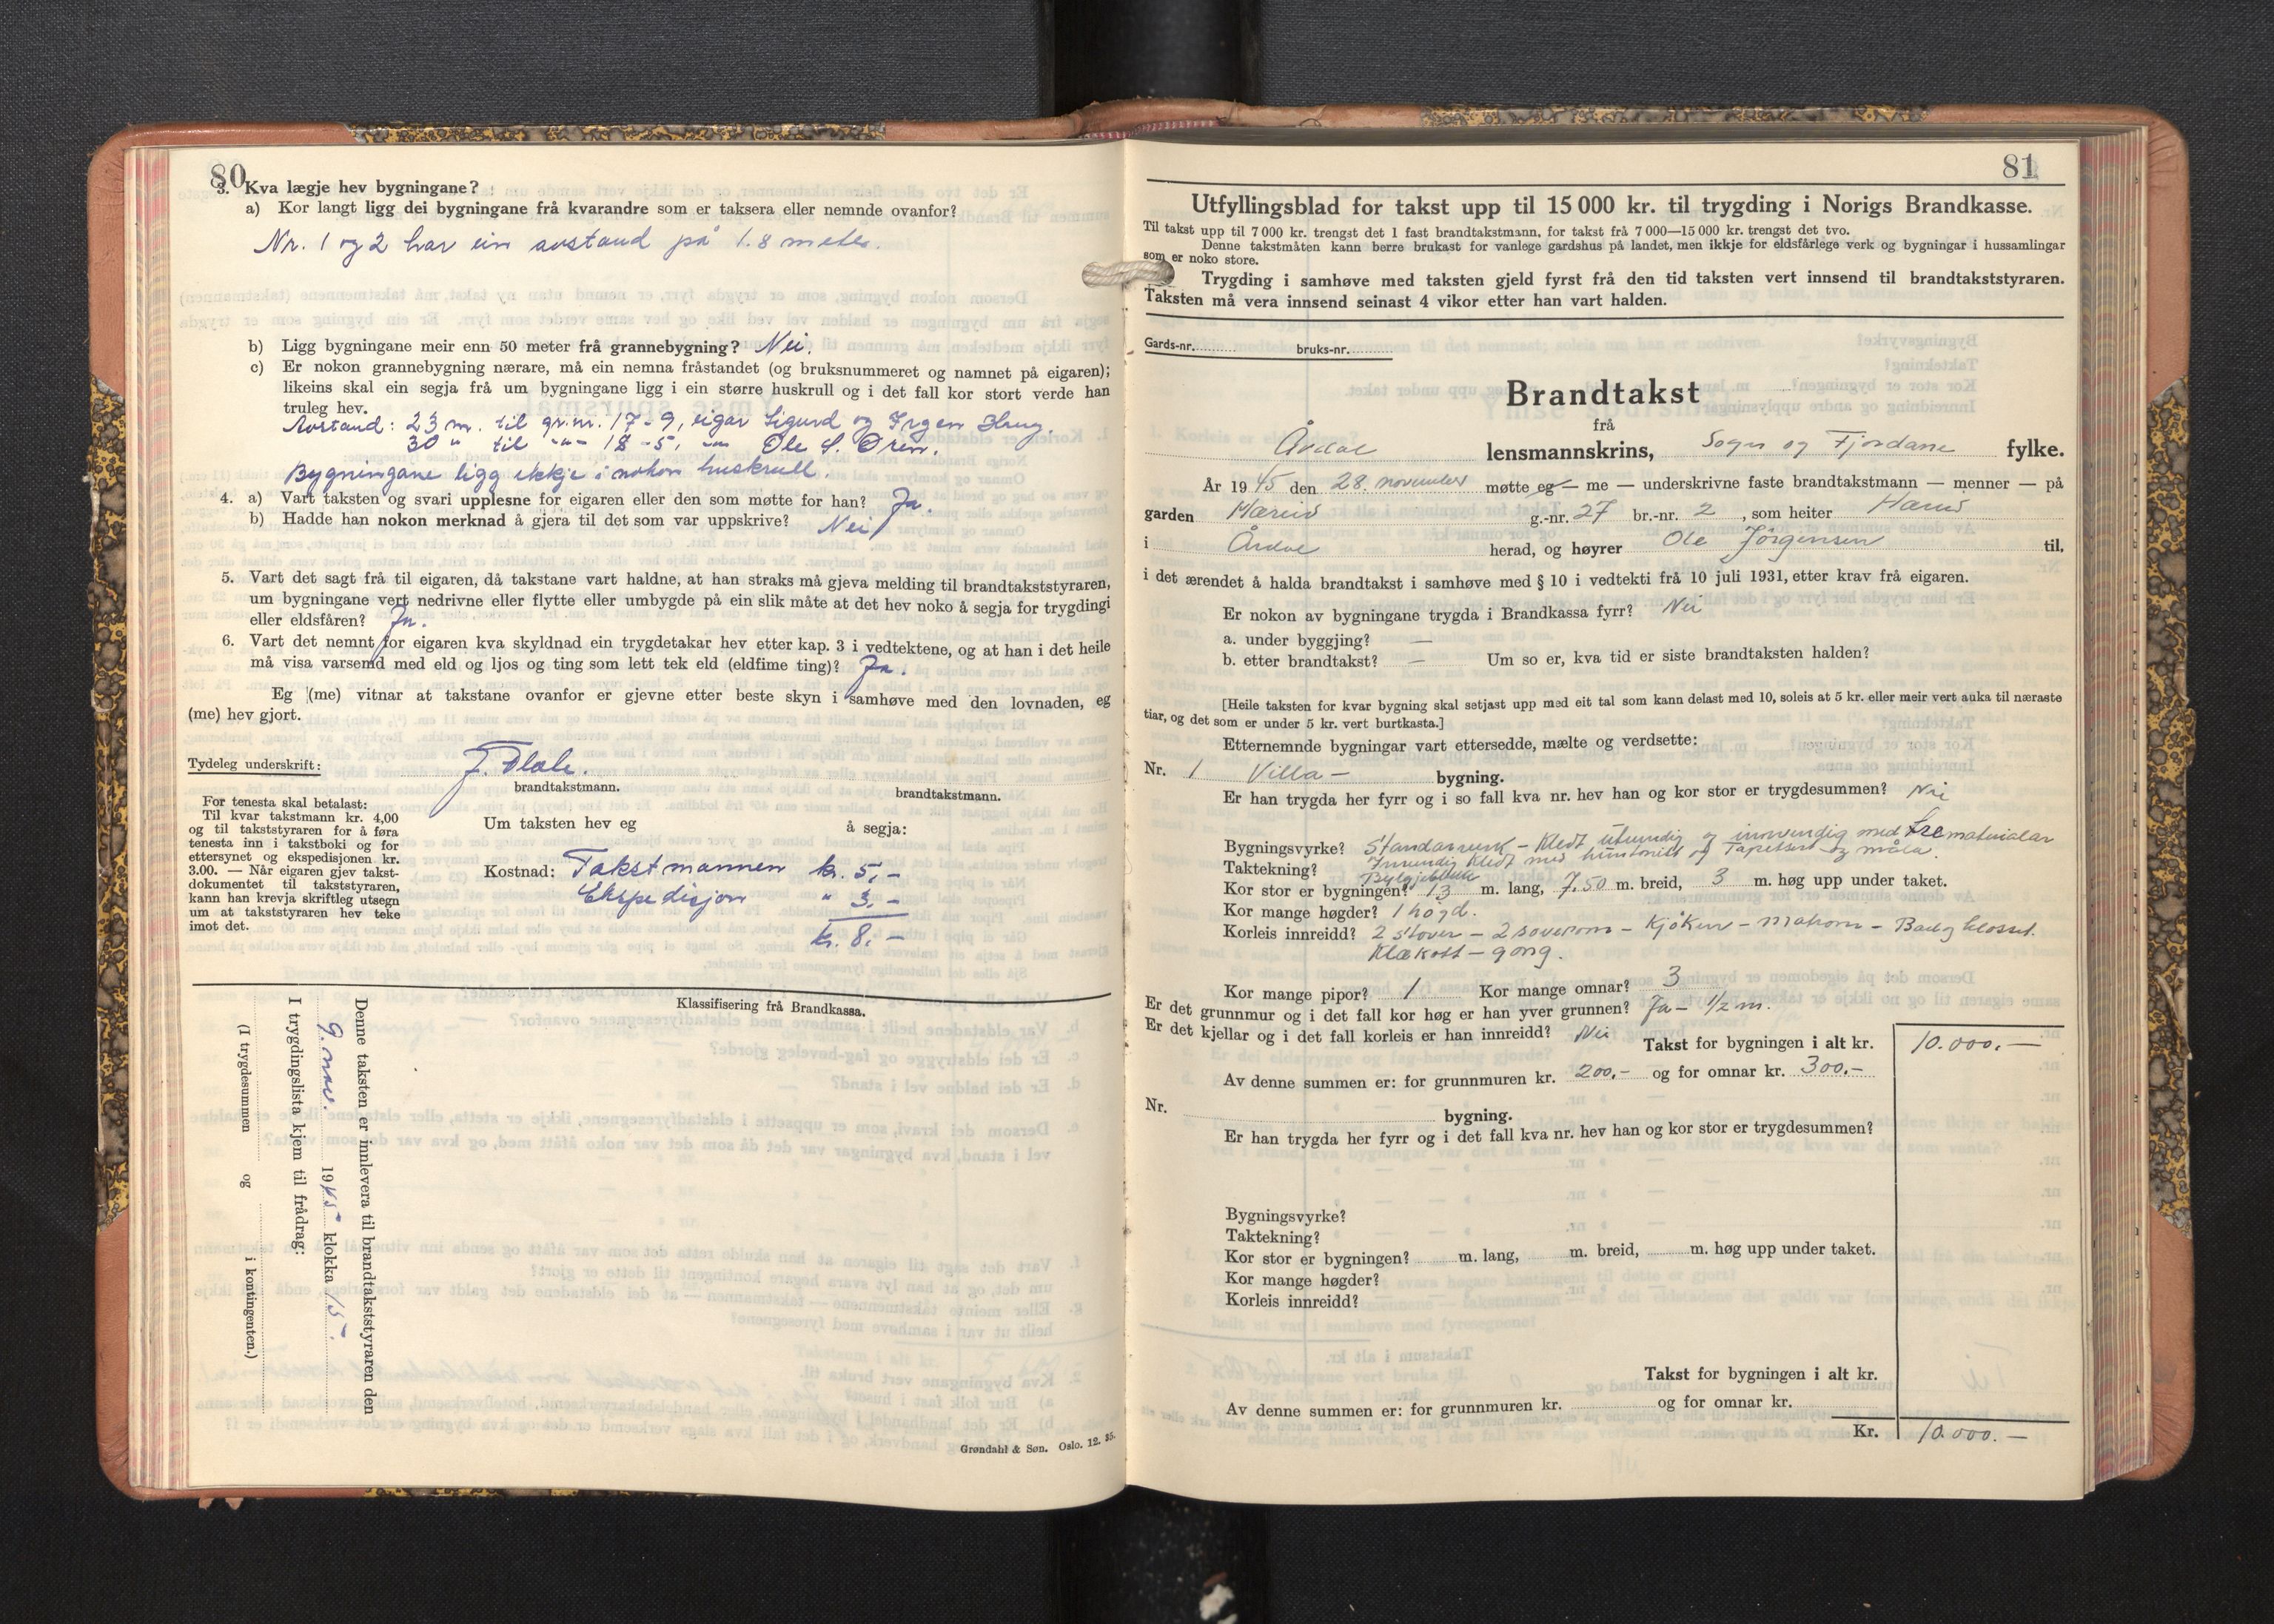 80
3. Kva lægje hev bygningane?
a) Kor langt ligg dei bygningane frå kvarandre som er taksera eller nemnde ovanfor?
Nr. 1 og 2 har ein avstand på 1.8 meter.
b) Ligg bygningane meir enn 50 meter frå grannebygning? Nei.
c) Er nokon grannebygning nærare, må ein nemna fråstandet (og bruksnummeret og namnet på eigaren);
likeins skal ein segja frå um bygningane ligg i ein større huskrull og i det fall kor stort verde han
truleg hev.
Avstand: 23 m. til gr.nr. 17-9, eigar Sigurd og Haug.
30 " til -"- 18-5, -"- Ole S. Øren.
Bygningane ligg ikkje i nokon huskrull.
4. a) Vart taksten og svari upplesne for eigaren eller den som møtte for han? Ja.
b) Hadde han nokon merknad å gjera til det som var uppskrive? Nei
5. Vart det sagt frå til eigaren, då takstane vart haldne, at han straks må gjeva melding til brandtakststyraren,
um bygningane vert nedrivne eller flytte eller umbygde på ein slik måte at det hev noko å segja for trygdingi
eller eldsfåren? Ja.
6. Vart det nemnt for eigaren kva skyldnad ein trygdetakar hev etter kap. 3 i vedtektene, og at han i det heile
må visa varsemd med eld og ljos og ting som lett tek eld (eldfime ting)? Ja.
Eg (me) vitnar at takstane ovanfor er gjevne etter beste skyn i samhøve med den lovnaden, eg
(me) hev gjort.
Tydeleg underskrift:
brandtakstmann.
brandtakstmann.
For tenesta skal betalast:
Til kvar takstmann kr. 4,00
og til takststyraren for å føra
tenesta inn i takstboki og for
ettersynet og ekspedisjonen kr.
3.00. — Når eigaren gjev takst-
dokumentet til takststyraren,
kann han krevja skriftleg utsegn
um at takststyraren hev teke
imot det.
Um taksten hev eg å segja:
Kostnad: Takstmannen kr. 5,-
Ekspedisjon " 3.-
kr. 8.-
Klassifisering frå Brandkassa.
Denne taksten er innlevera til brandtakststyraren den
9. nov. 1945 klokka 15.
I trygdingslista kjem til frådrag:
(I trygdesummen og i kontingenten.)
Grøndahl & Søn. Oslo. 12. 35.
81
Utfyllingsblad for takst upp til 15 000 kr. til trygding i Norigs Brandkasse.
Til takst upp til 7 000 kr. trengst det 1 fast brandtakstmann, for takst frå 7 000—15 000 kr. trengst det tvo.
Denne takstmåten kann berre brukast for vanlege gardshus på landet, men ikkje for eldsfårlege verk og bygningar i hussamlingar
som er noko store.
Trygding i samhøve med taksten gjeld fyrst frå den tid taksten vert innsend til brandtakststyraren.
Taksten må vera innsend seinast 4 vikor etter han vart halden.
Gards-nr. bruks-nr.
Brandtakst
frå
Årdal lensmannskrins, Sogn og Fjordane fylke.
År 1945 den 28. november møtte eg — me — underskrivne faste brandtakstmann — menner — på
garden Hæreid g.-nr. 27 br.-nr. 2, som heiter Hæreid
i Årdal herad, og høyrer Ole Jörgensen til,
i det ærendet å halda brandtakst i samhøve med § 10 i vedtekti frå 10 juli 1931, etter krav frå eigaren.
Er nokon av bygningane trygda i Brandkassa fyrr? Nei
a. under byggjing? —
b. etter brandtakst? — Um so er, kva tid er siste brandtaksten halden?
[Heile taksten for kvar bygning skal setjast upp med eit tal som kann delast med 10, soleis at 5 kr. eller meir vert auka til næraste
tiar, og det som er under 5 kr. vert burtkasta.]
Etternemnde bygningar vart ettersedde, mælte og verdsette:
Nr. 1 Villa - bygning.
Er han trygda her fyrr og i so fall kva nr. hev han og kor stor er trygdesummen? Nei
Bygningsvyrke? - Kledt utvendig og innvendig med trematerialar
Innvendig kledt med huntonitt og Tapetsert og måla.
Taktekning? Bylgjeblikk
Kor stor er bygningen? 13 m. lang, 7,50 m. breid, 3 m. høg upp under taket.
Kor mange høgder? 1 høgd.
Korleis innreidd? 2 stover - 2 soverom - Kjøken - matrom - Bad og klosset.
Klækott - gong.
Kor mange pipor? 1 Kor mange omnar? 3
Er det grunnmur og i det fall kor høg er han yver grunnen? Ja - 1/2 m.
Er det kjellar og i det fall korleis er han innreidd? Nei
Takst for bygningen i alt kr. 10.000.-
Av denne summen er: for grunnmuren kr. 200.- og for omnar kr. 300.-
Nr. bygning.
Er han trygda her fyrr og i det fall kva nr. hev han og kor stor er trygdesummen?
Bygningsvyrke?
Taktekning?
Kor stor er bygningen? m. lang, m. breid, m. høg upp under taket.
Kor mange høgder?
Korleis innreidd?
Takst for bygningen i alt kr.
Av denne summen er: for grunnmuren kr. og for omnar kr.
Kr. 10.000.-